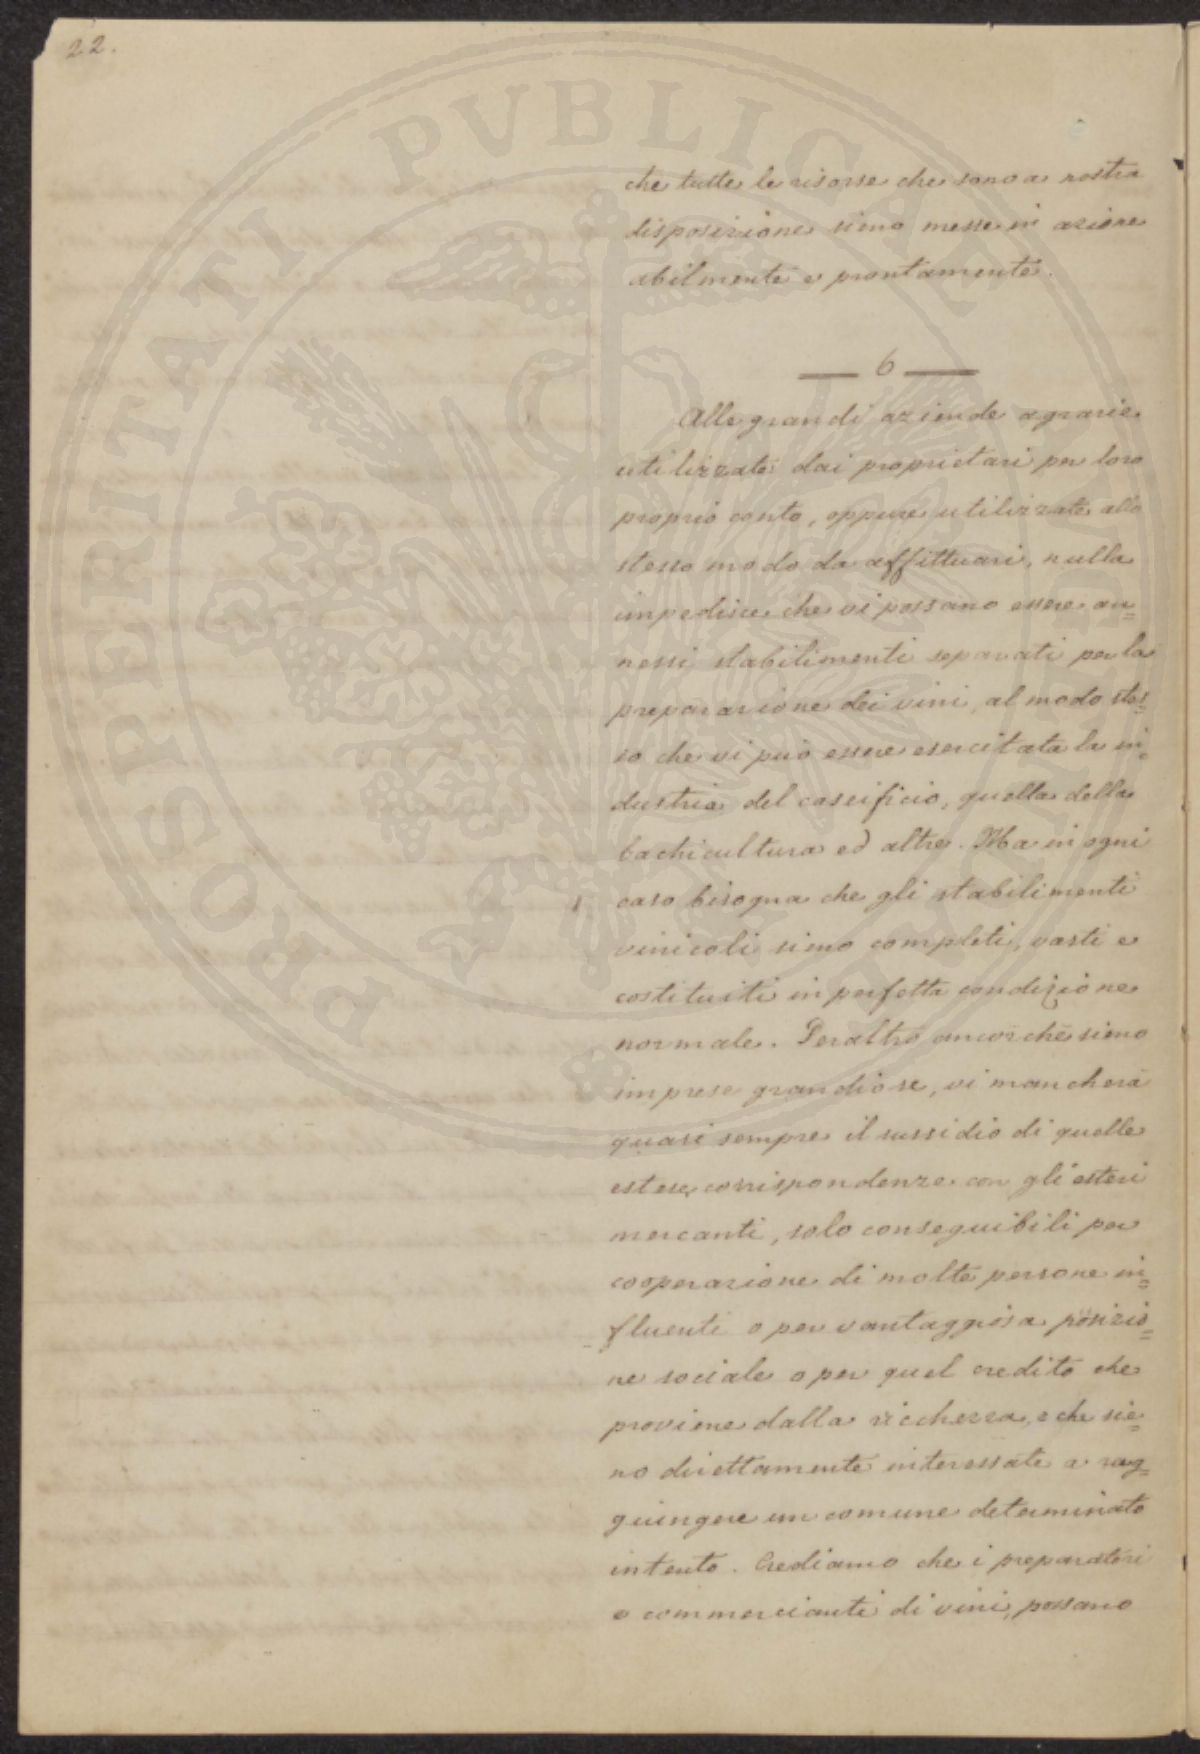 22.
PROSPERITATI PVBLICAE
che tutte le risorse che sono a nostra
disposizione sieno messe in azione
abilmente e prontamente.
6
Alle grandi aziende agrarie
utilizzate dai proprietari per loro
proprio conto, oppure utilizzate allo
stesso modo da affittuari, nulla
impedisce che vi possano essere an=
nessi stabilimenti separati per la
preparazione dei vini, al modo stes=
so che vi può essere esercitata la in=
dustria del caseificio, quella della
bachicultura ed altre. Ma in ogni
caso bisogna che gli stabilimenti
vinicoli sieno completi, vasti e
costituiti in perfetta condizione
normale. Peraltro ancorchè sieno
imprese grandiose, vi mancherà
quasi sempre il sussidio di quelle
estese corrispondenze con gli esteri
mercanti, solo conseguibili per
cooperazione di molte persone in=
fluenti o per vantaggiosa posizio=
ne sociale o per quel credito che
proviene dalla ricchezza, e che sie=
no direttamente interessate a rag=
guingere un comune determinato
intento. Crediamo che i preparatori
e commercianti di vini, possano